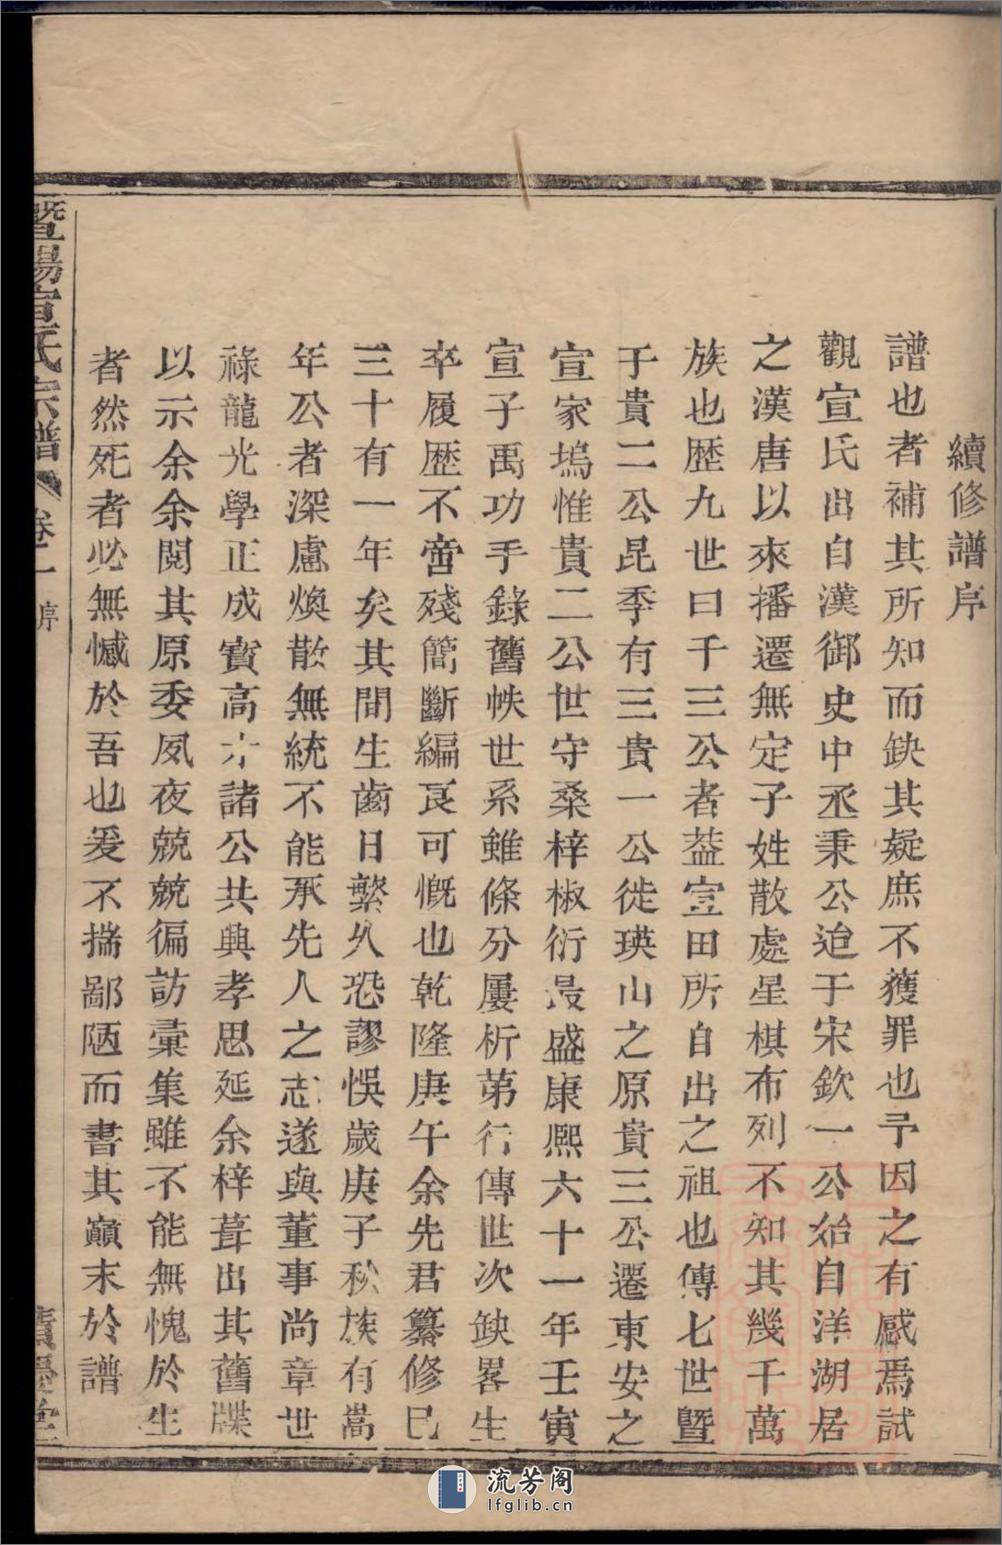 續修譜序
譜也者補其所知而缺其疑庶不獲罪也予因之有感焉試
觀宣氏出自漢御史中丞秉公迨于宋欽一公始自洋湖居
之漢唐以來播遷無定子姓散處星棋布列不知其幾千萬
族也歷九世曰千三公者葢宣田所自出之祖也傳七世暨
于貴二公昆季有三貴一公徙瑛山之原貴三公遷東安之
宣家塢惟貴二公世守桑梓椒衍最盛康熙六十一年壬寅
宣子禹功手錄舊帙世系雖條分屢析第行傳世次缺畧生
卒履歷不啻殘簡斷編良可慨也乾隆庚午余先君纂修巳
三十有一年矣其間生齒日繁久恐謬悞歲庚子秋族有嵩
年公者深慮煥散無統不能承先人之志遂與董事尚章世
祿龍光學正成賓高才諸公共興孝思延余梓葺出其舊牒
以示余余閱其原委夙夜兢兢徧訪彙集雖不能無愧於生
者然死者必無憾於吾也爰不揣鄙陋而書其巔末於譜
暨陽宣氏宗譜 卷一 序
流芳阁
lfglib.cn